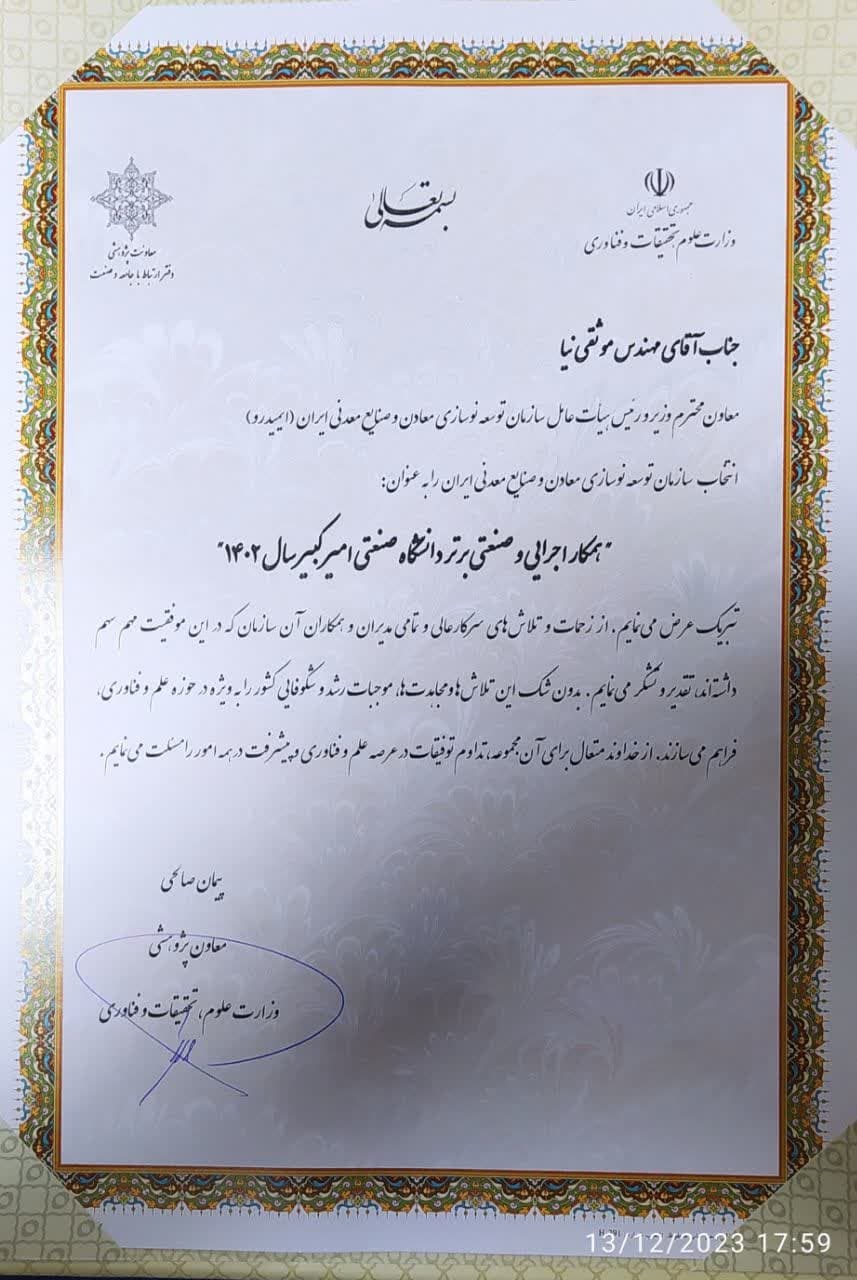 جمهوری اسلامی ایران
وزارت علوم، تحقیقات و فناوری
بسمه تعالی
معاونت پژوهشی
دفتر ارتباط با جامعه و صنعت
جناب آقای مهندس موثقی نیا
معاون محترم وزیر و رئیس هیأت عامل سازمان توسعه نوسازی معادن و صنایع معدنی ایران (ایمیدرو)
انتخاب سازمان توسعه نوسازی معادن و صنایع معدنی ایران را به عنوان:
"همکار اجرایی و صنعتی برتر دانشگاه صنعتی امیرکبیر سال ۱۴۰۲"
تبریک عرض می‌نمایم. از زحمات و تلاش‌های سرکارعالی و تمامی مدیران و همکاران آن سازمان که در این موفقیت مهم سهم
داشته‌اند، تقدیر و تشکر می‌نمایم. بدون شک این تلاش‌ها و مجاهدت‌ها، موجبات رشد و شکوفایی کشور را به ویژه در حوزه علم و فناوری،
فراهم می‌سازند. از خداوند متعال برای آن مجموعه، تداوم توفیقات در عرصه علم و فناوری و پیشرفت در همه امور را مسئلت می‌نمایم.
پیمان صالحی
معاون پژوهشی
وزارت علوم، تحقیقات و فناوری
13/12/2023 17:59